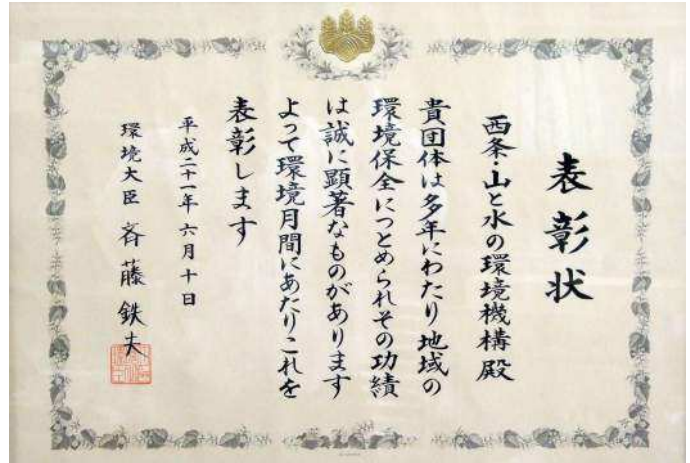 表彰状
西条・山と水の環境機構殿
貴団体は多年にわたり地域の
環境保全につとめられその功績
は誠に顕著なものがあります
よって環境月間にあたりこれを
表彰します
平成二十一年六月十日
環境大臣 斉藤鉄夫